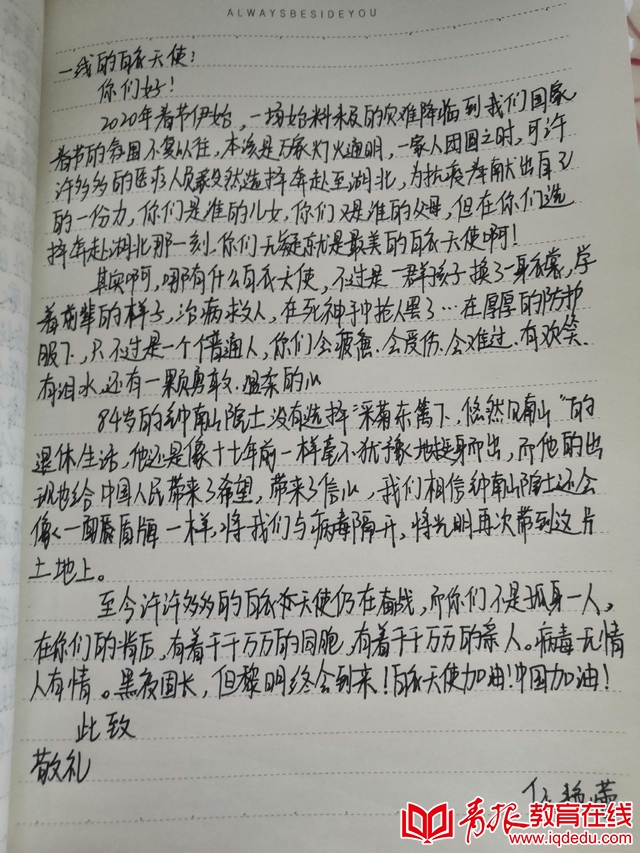 ALWAYSBESIDEYOU
一线的白衣天使：
你们好！
2020年春节伊始，一场始料未及的灾难降临到我们国家
春节的氛围不复以往，本该是万家灯火通明，一家人团圆之时，可许
许多多的医疗人员毅然选择奔赴至湖北，为抗疫奉献出自己
的一份力，你们是谁的儿女，你们又是谁的父母，但在你们选
择奔赴湖北那一刻，你们无疑就是最美的白衣天使啊！
其实啊，哪有什么白衣天使，不过是一群孩子换了一身衣裳，学
着前辈的样子，治病救人，在死神手中抢人罢了…在厚厚的防护
服下，只不过是一个个普通人，你们会疲惫、会受伤、会难过、有欢笑、
有泪水、还有一颗勇敢、温柔的心
84岁的钟南山院士没有选择“采菊东篱下，悠然见南山”的
退休生活，他还是像十七年前一样毫不犹豫地挺身而出，而他的出
现也给中国人民带来了希望，带来了信心，我们相信钟南山院士还会
像一面盾牌一样，将我们与病毒隔开，将光明再次带到这片
土地上。
至今许许多多的白衣天使仍在奋战，而你们不是孤身一人，
在你们的背后，有着千千万万的同胞，有着千千万万的亲人。病毒无情
人有情。黑夜固长，但黎明终会到来！白衣天使加油！中国加油！
此致
敬礼
青报教育在线
www.iqdedu.com